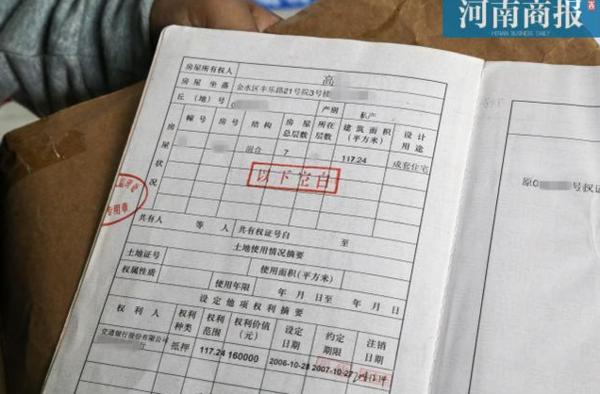 河南商报
HENAN BUSINESS DAILY
房屋所有权人 高
房屋坐落 金水区丰乐路21号院3号楼
丘（地）号 0 产别 私产
房屋状况
幢号 房号 结构 房屋总层数 所在层数 建筑面积（平方米） 设计用途
混合 7 117.24 成套住宅
以下空白
专用章
共有人 等 人 共有权证号自 至
土地使用情况摘要
土地证号 使用面积（平方米）
权属性质 使用年限 年 月 日至 年 月 日
设定他项权利摘要
权利人 权利种类 权利范围 权利价值（元） 设定日期 约定期限 注销日期
交通银行股份有限公司
抵押 117.24 160000 2006-10-28 2007-10-27
原0 号权证